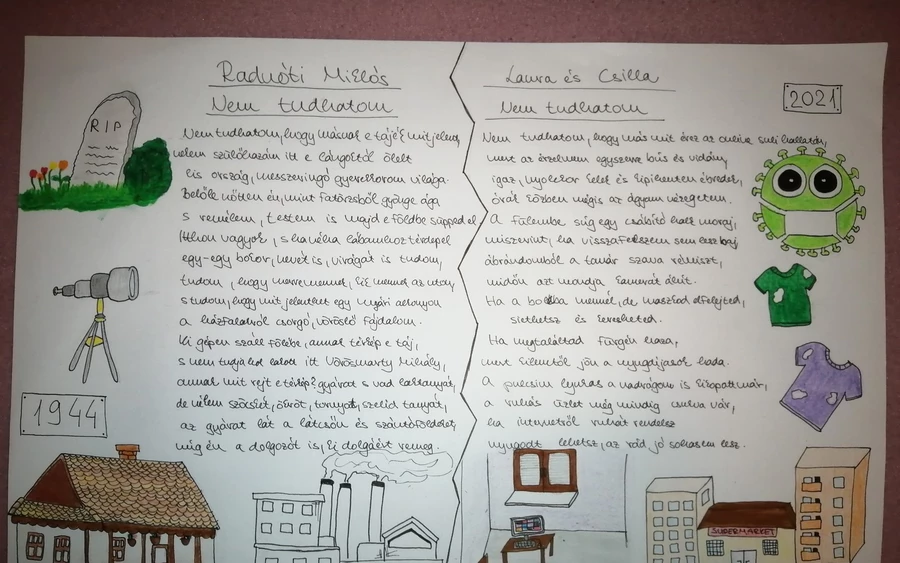 Radnóti Miklós
Nem tudhatom
RIP
1944
Nem tudhatom, hogy másnak e tájék mit jelent,
nekem szülőhazám itt e lángoktól ölelt
kis ország, messzeringó gyerekkorom világa.
Belőle nőttem én, mint fatörzsből gyönge ága
s remélem, testem is majd e földbe süpped el
Itthon vagyok, s ha néha lábamhoz térdepel
egy-egy bokor, nevét is, virágát is tudom,
tudom, hogy merre mennek, kik mennek az uton,
s tudom, hogy mit jelenthet egy nyári alkonyon
a házfalakról csorgó, vöröslő fájdalom.
Ki gépen száll fölébe, annak térkép e táj,
s nem tudja hol lakott itt Vörösmarty Mihály,
annak mit rejt e térkép? gyárat s vad laktanyát,
de nékem szöcskét, ökröt, tornyot, szelíd tanyát,
az gyárat lát a látcsőn és szántóföldeket,
míg én a dolgozót is, ki dolgáért remeg.
Laura és Csilla
Nem tudhatom
2021
Nem tudhatom, hogy más mit érez az online suli hallatán,
mert az érzelmem egyszerre bús és vidám,
igaz, nyolckor kelek és kipihenten ébredek,
órák közben mégis az ágyam nézegetem.
A fülembe súg egy csábító halk moraj,
miszerint, ha visszafekszem sem lesz baj,
ábrándomból a tanár szava rémiszt,
midőn azt mondja kamerát átvit.
Ha a boltba mennél, de maszkod elfelejted,
siethetsz és keresheted.
Ha megtaláltad fürgén haza,
mert kilenctől jön a nyugdíjasok hada.
A pulcsim lyukas a nadrágom is kikopott már,
a ruhás üzlet még mindig csukva vár,
ha internetről ruhát rendelsz
nyugodt lehetsz, az rád jó sohasem lesz.
SUPERMARKET